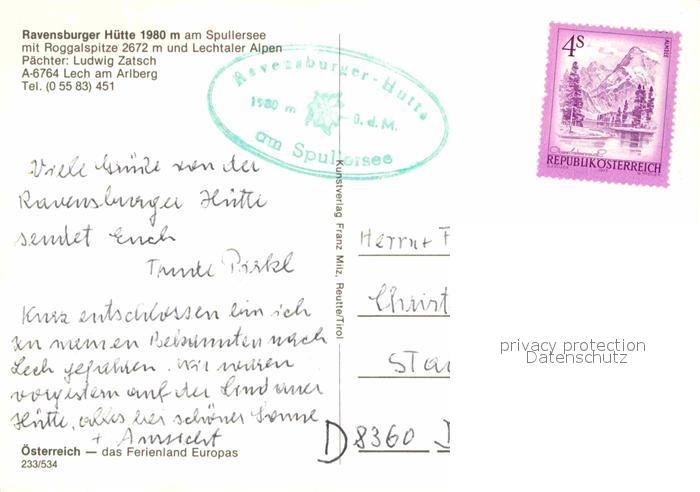 Ravensburger Hütte 1980 m am Spullersee
mit Roggalspitze 2672 m und Lechtaler Alpen
Pächter: Ludwig Zatsch
A-6764 Lech am Arlberg
Tel. (0 55 83) 451
Ravensburger-Hütte
1980 m ü.d.M.
am Spullersee
4 S
ALMSEE
REPUBLIK ÖSTERREICH
Viele Grüße von der
Ravensburger Hütte
sendet Euch
Tante
Kurz entschlossen bin ich
zu meinen Bekannten nach
Lech gefahren. Wir waren
vorgestern auf der Lindauer
Hütte, alles bei schöner Sonne
+ Aussicht
Österreich — das Ferienland Europas
233/534
Kunstverlag Franz Milz, Reutte/Tirol
Herrn + F
Christ
Sta
D 8360
privacy protection
Datenschutz